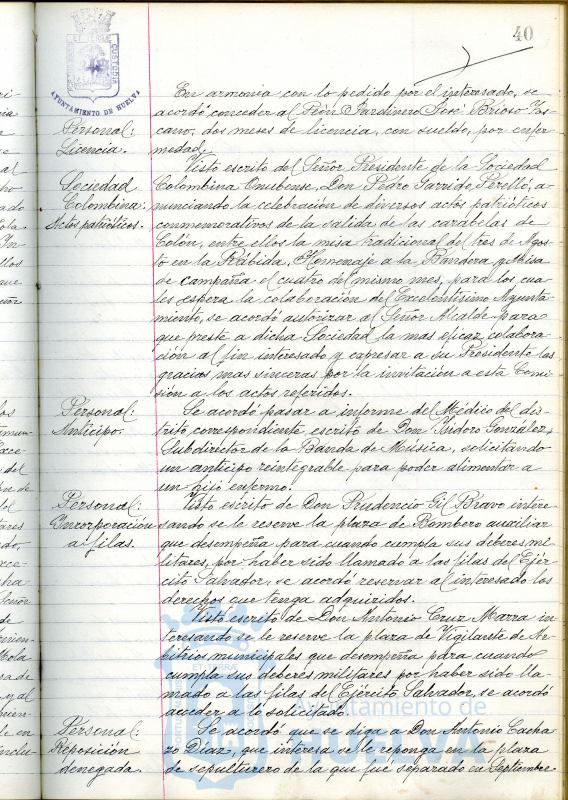 40
AYUNTAMIENTO DE HUELVA
CUSTODIA
En armonia con lo pedido por el interesado, se
acordó conceder al Peón Jardinero José Brioso Tos-
Personal: cano, dos meses de licencia, con sueldo, por enfer-
Licencia. medad.
Visto escrito del Señor Presidente de la Sociedad
Sociedad Colombina Onubense, Don Pedro Garrido Perelló, a-
Colombina: nunciando la celebración de diversos actos patrióticos
Actos patrióticos. conmemorativos de la salida de las carabelas de
Colón, entre ellos la misa tradicional del tres de Agos-
to en la Rábida, Homenaje a la Bandera y Misa
de campaña el cuatro del mismo mes, para los cua-
les espera la colaboración del Excelentísimo Ayunta-
miento, se acordó autorizar al Señor Alcalde para
que preste a dicha Sociedad la mas eficaz colabora-
ción al fin interesado y expresar a su Presidente las
gracias mas sinceras por la invitación a esta Comi-
sión a los actos referidos.
Personal: Se acordó pasar a informe del Médico del dis-
Anticipo. trito correspondiente escrito de Don Isidoro González,
Subdirector de la Banda de Música, solicitando
un anticipo reintegrable para poder alimentar a
un hijo enfermo.
Personal: Visto escrito de Don Prudencio Gil Bravo intere-
Incorporación sando se le reserve la plaza de Bombero auxiliar
a filas. que desempeña para cuando cumpla sus deberes mi-
litares, por haber sido llamado a las filas del Ejér-
cito Salvador, se acordó reservar al interesado los
derechos que tenga adquiridos.
Visto escrito de Don Antonio Cruz Marra in-
teresando se le reserve la plaza de Vigilante de Ar-
bitrios municipales que desempeña para cuando
cumpla sus deberes militares por haber sido lla-
mado a las filas del Ejército Salvador, se acordó
acceder a lo solicitado.
Personal: Se acordó que se diga a Don Antonio Cacha-
Reposición zo Díaz, que interesa se le reponga en la plaza
denegada. de sepulturero de la que fué separado en Septiembre
Ayuntamiento de
HUELVA